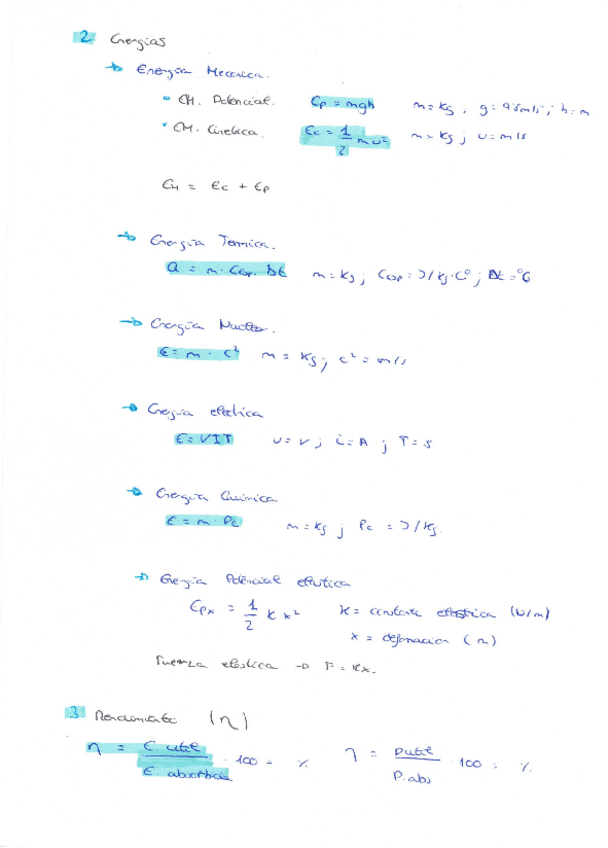 2 Energias
→ Energía Mecanica.
• EM. Potencial. Ep = mgh m = Kg, g = 9'8 m/s², h = m
• EM. Cinetica. Ec = 1/2 m v² m = Kg; v = m/s
EM = Ec + Ep
→ Energia Termica.
Q = m · Cesp. Δt m = Kg; Cesp = J/Kg·Cº; Δt = ºC
→ Energía Nuclear.
E = m · c² m = Kg; c² = m/s
→ Energia electrica
E = VIT v = V; i = A; T = s
→ Energía Quimica
E = m · Pc m = Kg; Pc = J/Kg.
→ Energía Potencial elastica
Epx = 1/2 K x² K = constante elastica (N/m)
x = deformacion (m)
Fuerza elastica → F = Kx.
3 Rendimiento (η)
η = E util / E. absorbida · 100 = % η = P util / P. abs · 100 = %